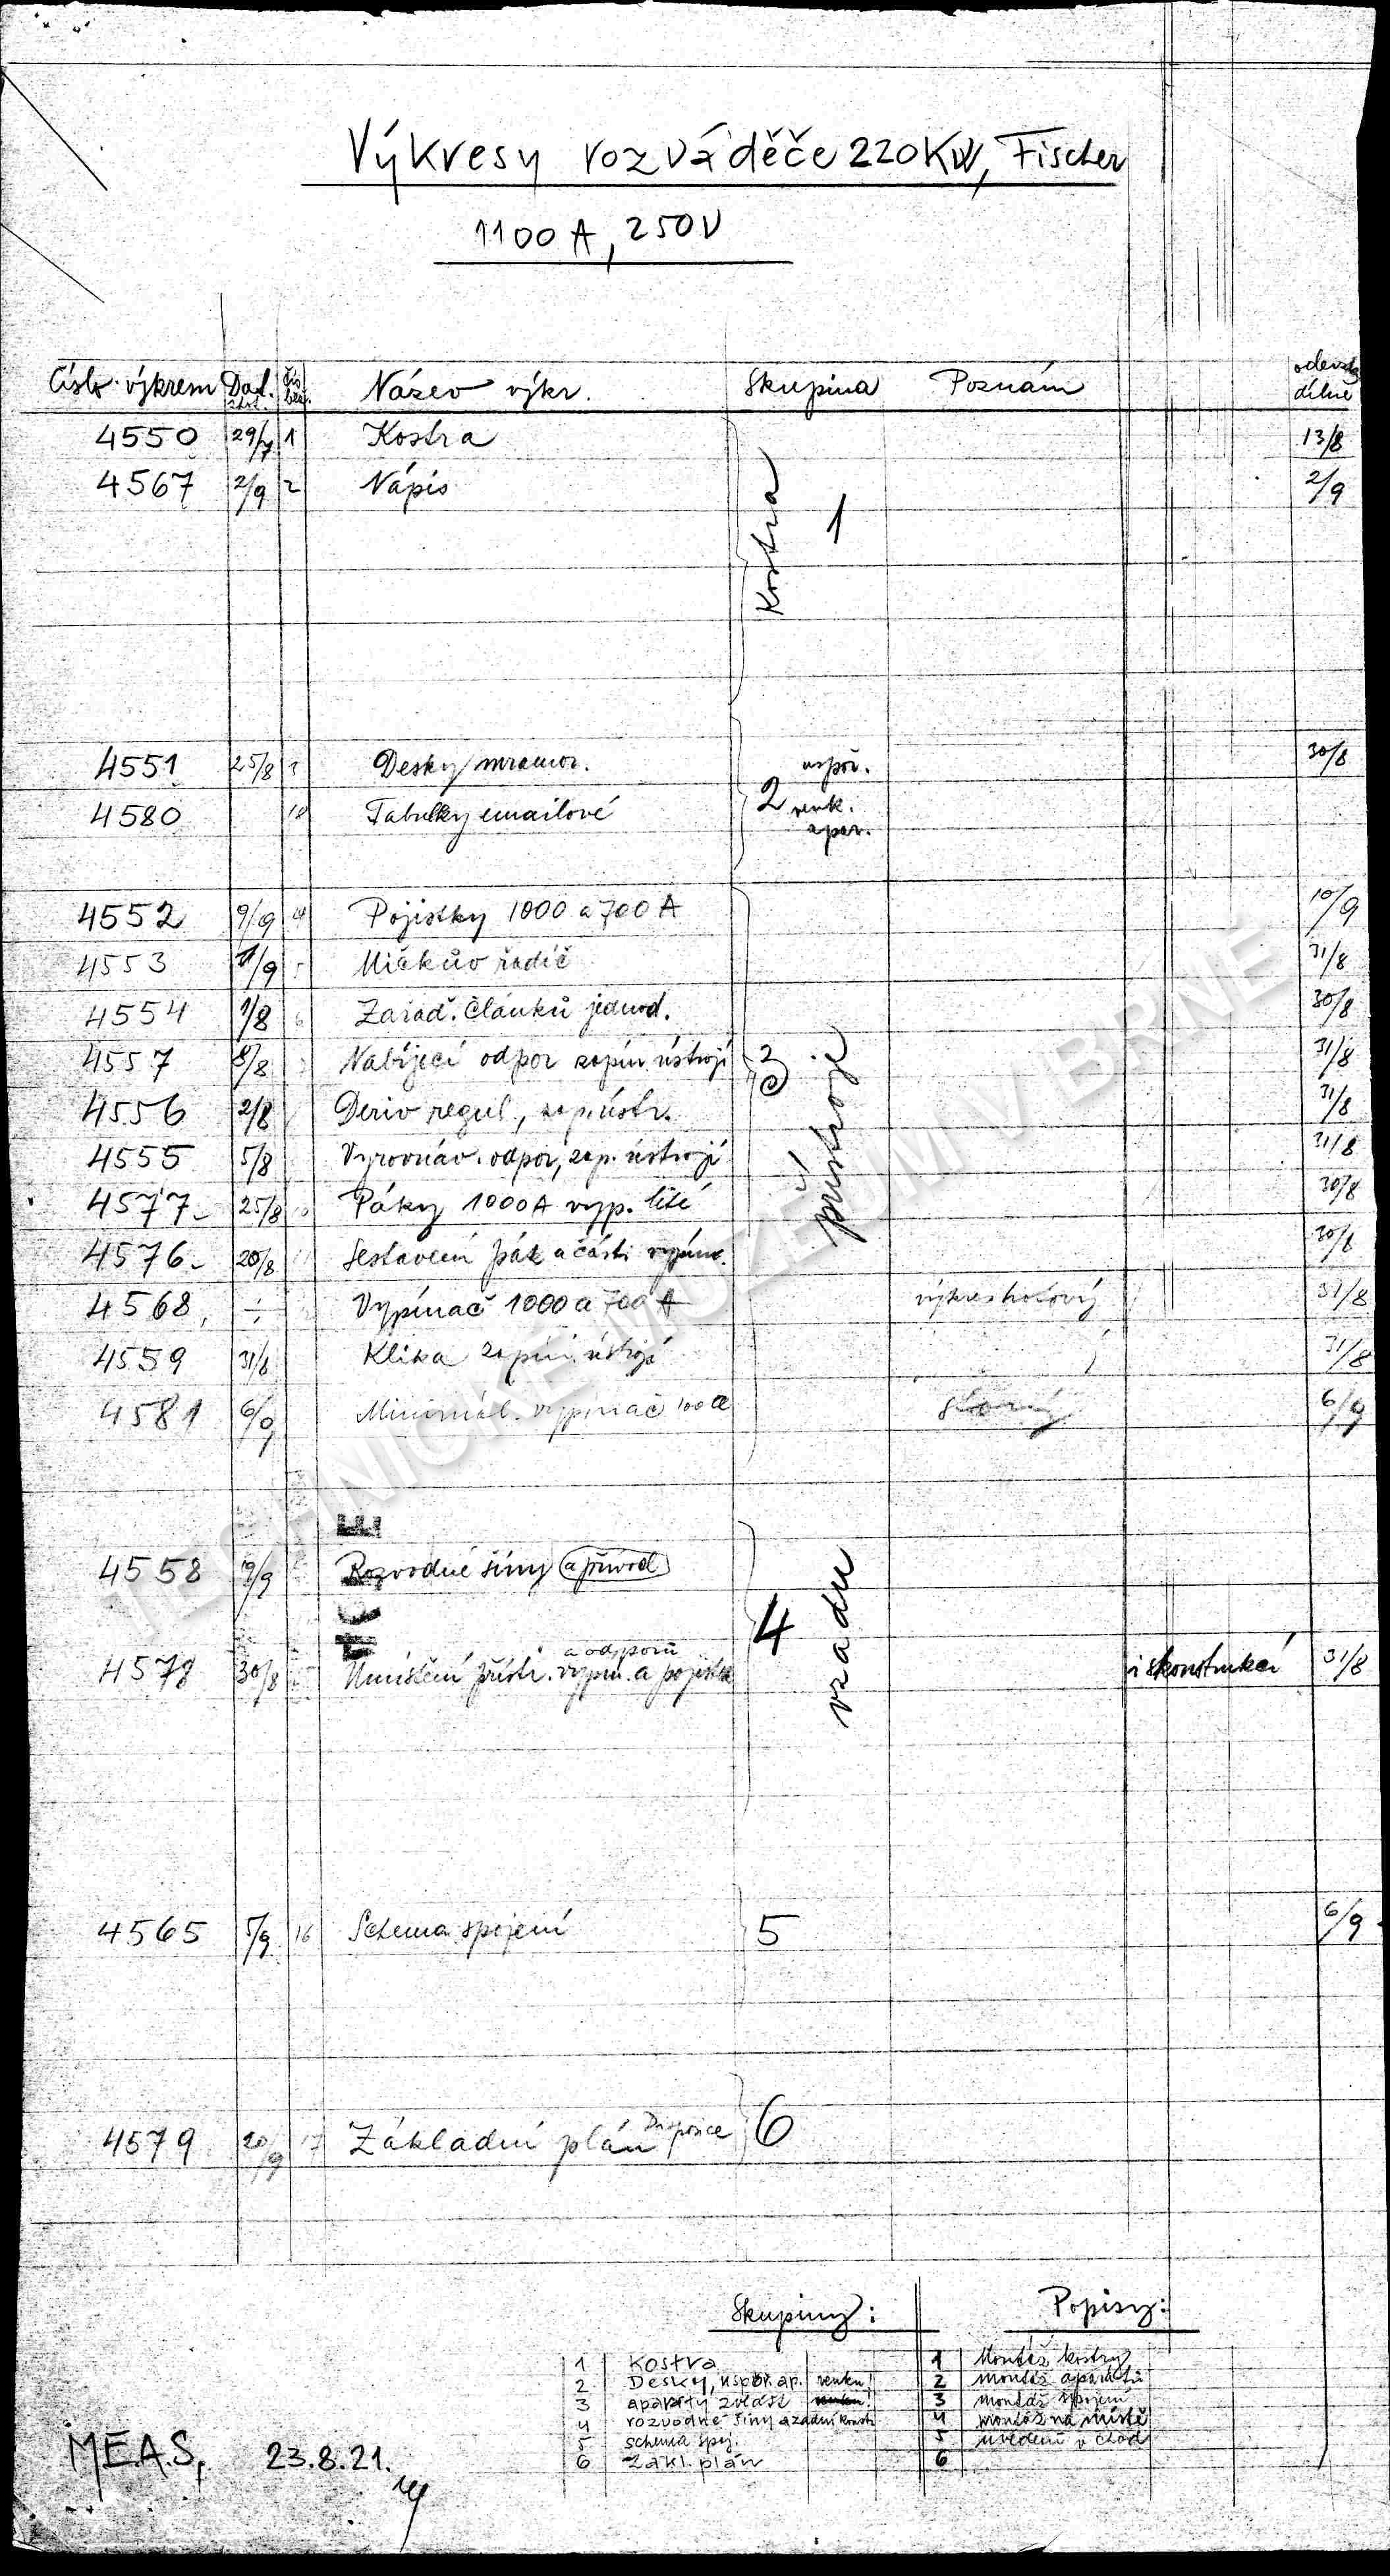 Výkresy rozváděče 220KW, Fischer
1100 A, 250V
Číslo výkresu Dat. Název výkr. Skupina Poznám odevzd.
dílně
4550 29/7 1 Kostra 13/8
4567 2/9 2 Nápis 2/9
Kostra 1
4551 25/8 3 Desky mramor. uspoř. 30/8
4580 18 Tabulky emailové 2 venk.
apar.
4552 9/9 4 Pojistky 1000 a 700 A 10/9
4553 /9 5 Mičkův řadič 31/8
4554 1/8 6 Zařad. článků jednod. 30/8
4557 8/8 Nabíjecí odpor zapín. ústrojí 31/8
přístroje
4556 2/8 Deriv regul., zap. ústr. 31/8
4555 5/8 Vyrovnáv. odpor, zap. ústrojí 31/8
4577 25/8 Páky 1000A vyp. lité 30/8
4576 20/8 Sestavení pák a části vypín. 30/8
4568 Vypínač 1000 a 700 A 31/8
4559 31/8 Klika zapín. ústrojí 31/8
4581 6/9 Minimál. vypínač 100 A 6/9
4558 /9 Rozvodné šíny a přívod
4 vzadu
a odporů
4578 30/8 Umístění přístr. vypín. a pojistek i skonstrukcí 31/8
4565 5/9 16 Schema spojení 5 6/9
4579 20/9 17 Základní plán Disposice 6
Skupiny: Popisy:
1 Kostra 1 Montáž kostry
2 Desky, uspoř. ap. venku! 2 montáž aparátů
3 aparáty zvlášť 3 montáž spojení
4 rozvodné šíny a zadní konstr. 4 montáž na místě
5 schema spoj. 5 uvedení v chod
6 zákl. plán 6
MEAS, 23.8.21.